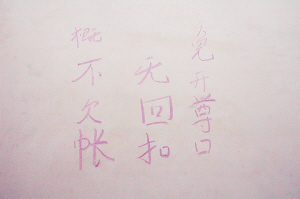 概不欠帐
无回扣
免开尊口